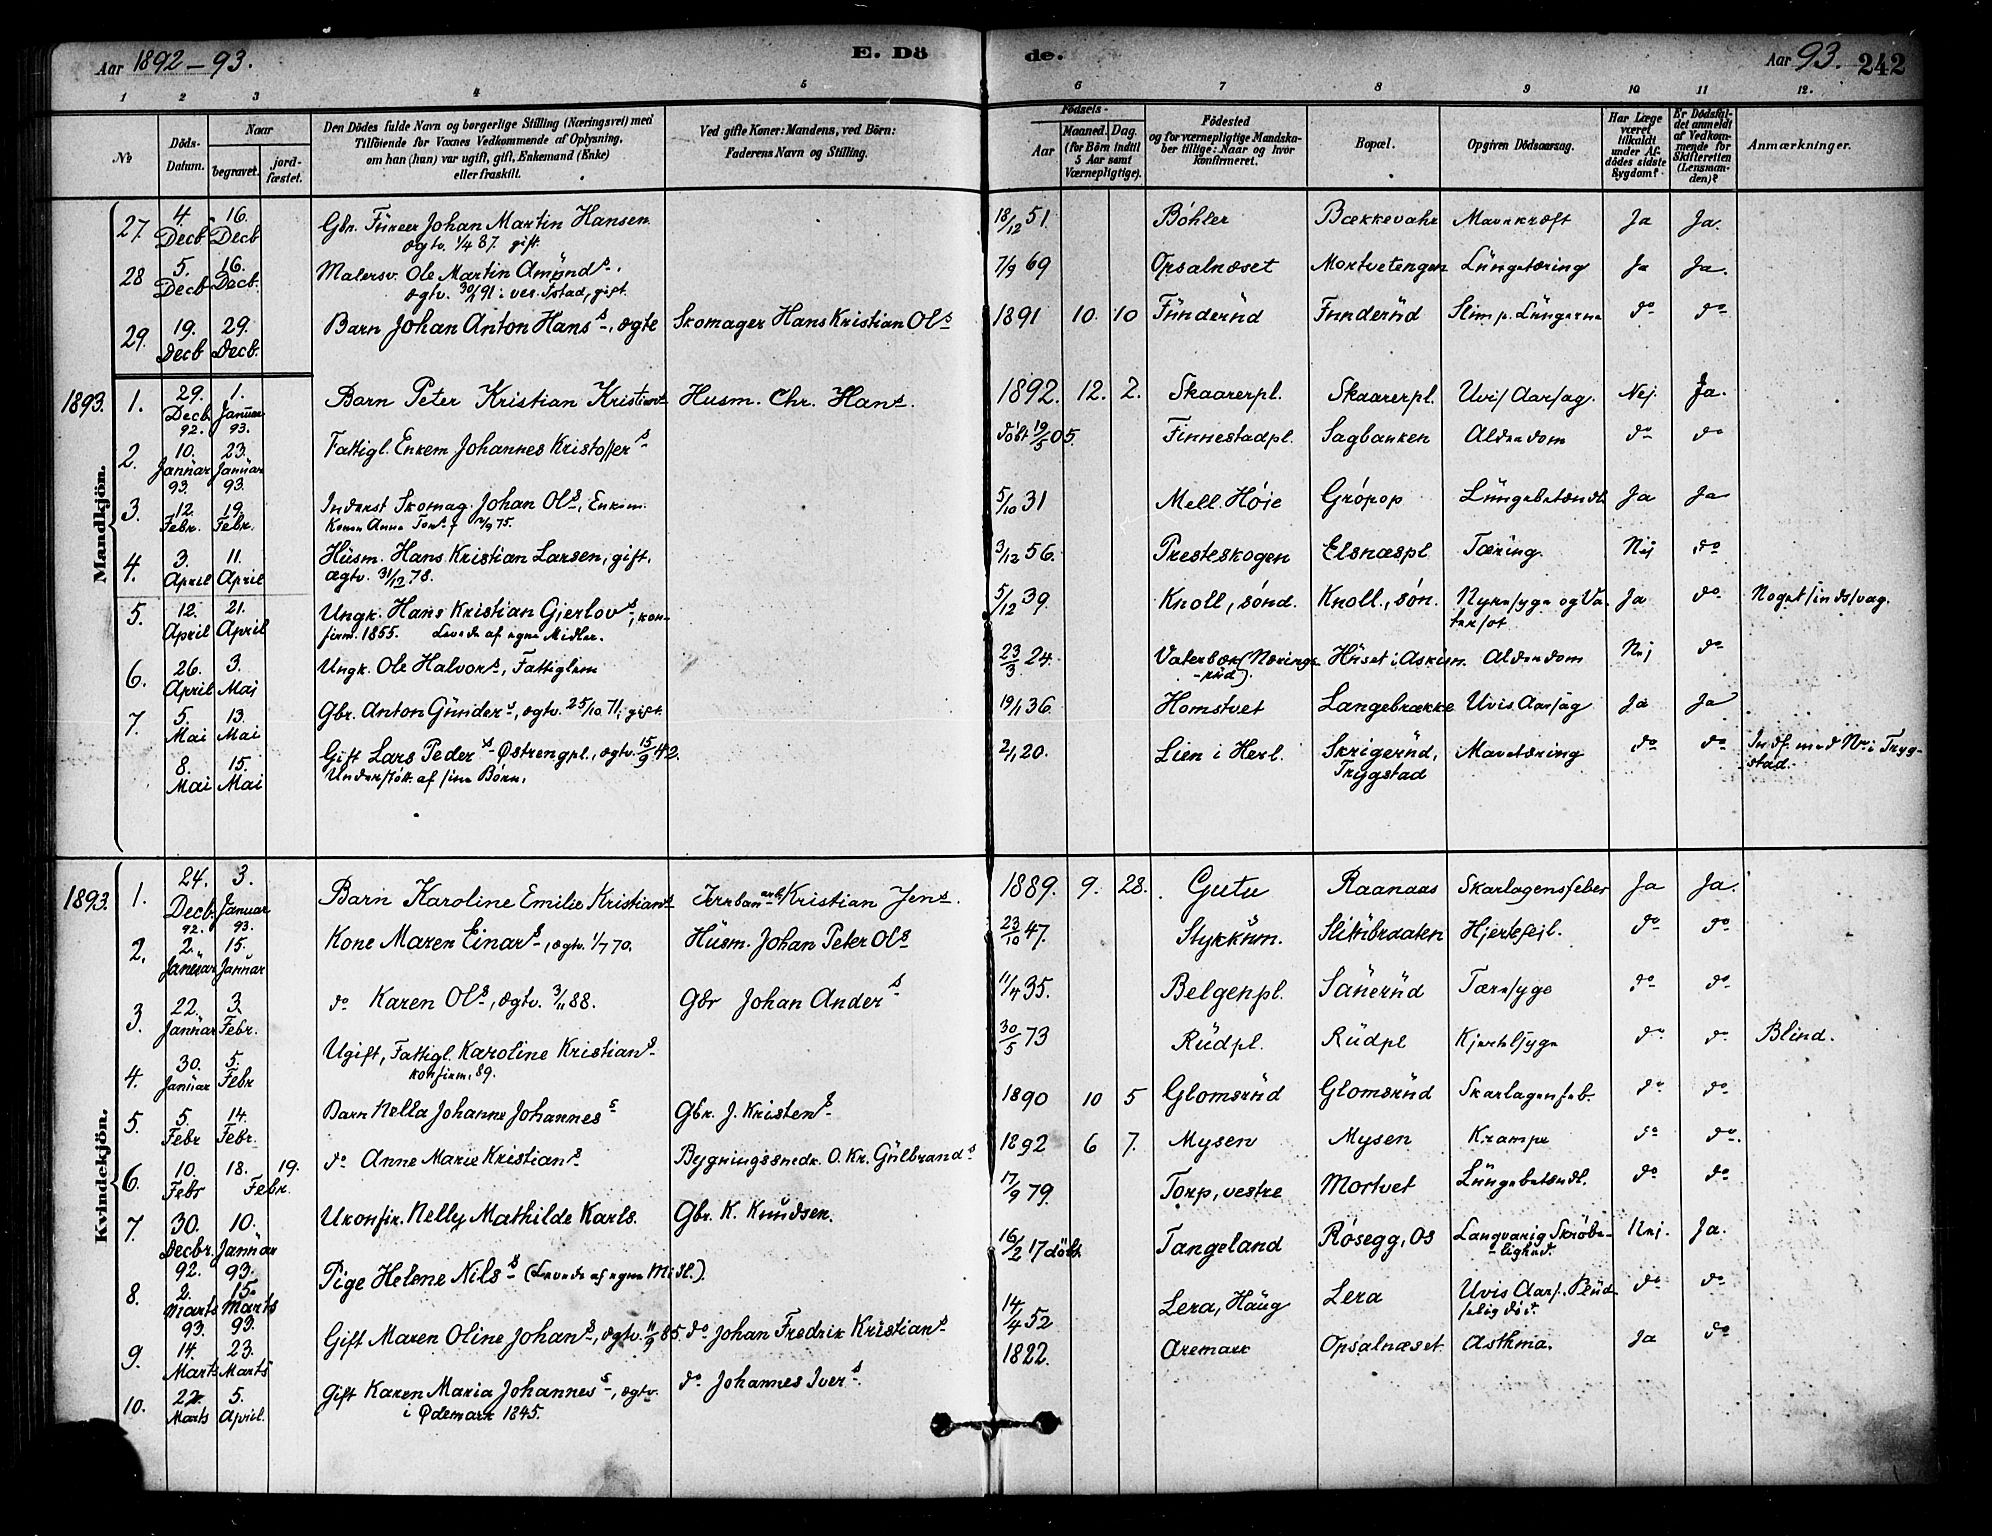 Aar 1892-93. E. Dö de. Aar 93. 242
1 2 3 4 5 6 7 8 9 10 11 12.
No
Döds-Datum.
Naar
begravet.
jord-fæstet.
Den Dödes fulde Navn og borgerlige Stilling (Næringsvei) med
Tilföiende for Voxnes Vedkommende af Oplysning,
om han (hun) var ugift, gift, Enkemand (Enke)
eller fraskilt.
Ved gifte Koner: Mandens, ved Börn:
Faderens Navn og Stilling.
Födsels-
Aar
Maaned. Dag.
(for Börn indtil
5 Aar samt
Værnepligtige).
Födested
og for værnepligtige Mandska-
ber tillige: Naar og hvor
konfirmeret.
Bopæl.
Opgiven Dödsaarsag.
Har Læge
været
tilkaldt
under Af-
dödes sidste
Sygdom?
Er Dödsfal-
det anmeldt
af Vedkom-
mende for
Skifteretten
(Lensman-
den)?
Anmærkninger.
Mandkjön.
27. 4 Decb 16. Decb Gbr. Johan Martin Hansen 18/12 51. Böhler Mavekræft Ja Ja.
ægtv. 1/4 87. gift.
28 5. Decb 16. Decb. Malersv. Ole Martin Amünds. 7/9 69 Opsalnæset Mortvetengen Lüngetæring Ja Ja.
gift.
29. 19. Decb 29. Decb. Barn Johan Anton Hans, ægte Skomager Hans Kristian Ols 1891 10. 10 do do
1893. 1. 29. Decb. 92. 1. Januar 93. Barn Peter Kristian Kristians Husm. Chr. Hans. 1892. 12. 2. Skaarerpl. Skaarerpl. Uvis Aarsag. Nej. Ja.
2. 10. Januar 93. 23. Januar 93. Fattigl. Enkem Johannes Kristoffers döbt 19/5 05. Finnestadpl. Sagbanken Alderdom do do
3. 12. Febr. 19. Febr. Inderst Skomag. Johan Ols, Enkem. 5/10 31 Mell. Höie Grópop Lüngebetændt. Ja Ja
4. 3. April 11. April Husm. Hans Kristian Larsen, gift. 3/12 56. Presteskogen Elsnæspl Tæring. Nej do
ægtv. 31/12 78.
5. 12. April 21. April Ungk. Hans Kristian Gjerlovs, kon- 5/12 39. Knoll, sönd. Knoll., sön. Nyresyge og Va- Ja do Noget sindssvag.
firm. 1855. Levede af egne Midler. tersot
6. 26. April 3. Mai Ungk. Ole Halvors, Fattiglem 23/3 24. Huset i Askim. Alderdom Nej do
7. 5. Mai 13. Mai Gbr. Anton Günders, ægtv. 25/10 71, gift. 19/1 36. Homstvet Langebrække Uvis Aarsag Ja Ja
8. Mai 15. Mai Gift Lars Peders Østrengpl., ægtv. 15/9 42. 2/1 20. Lien i Herl. Skrigerüd, Mavetæring do do Indf. med Nr i Tryg-
Understött. af sine Börn. Trygstad stad.
Kvindekjön.
1893. 1. 24. Decb. 92. 3. Januar 93. Barn Karoline Emilie Kristians Jernbanearb Kristian Jens. 1889. 9. 28. Gutu Raanaas Skarlagensfeber Ja Ja.
2. 2. Januar 15. Januar Kone Maren Einars, ægtv. 1/7 70. Husm. Johan Peter Ols 23/10 47. Slitubraaten Hjertefeil. do do
3. 22. Januar 3. Febr. do Karen Ols, ægtv. 3/11 88. Gbr Johan Anders 11/4 35. Belgenpl. Sänerüd Tæresyge do do
4. 30. Januar 5. Febr Ugift, Fattigl. Karoline Kristians 30/5 73 Rüdpl. Rüdpl Kjertelsyge do do Blind.
konfirm. 89.
5. 5. Febr 14. Febr. Barn Nella Johanne Johannes Gbr. J. Kristens 1890 10 5 Glomsrüd Glomsrüd Skarlagensfeb. do do
6. 10. Febr 18. 19. Febr. do Anne Marie Kristians Bygningssnedk. O. Kr. Gülbrands 1892 6 7. Mysen Mysen Krampe do do.
7 30. Decbr. 92. 10. Januar 93. Ukonfir. Nelly Mathilde Karls. Gbr. K. Knudsen. 17/9 79. Torp, vestre Mortvet Lüngebetændt. do do
8. 2. Marts 93. 15. Marts 93. Pige Helene Nils (Levede af egne Midl.). 16/2 17 döbt. Tangeland Røsegg, Os Langvarig Skröbe- Nej. Ja.
lighed.
9. 14. Marts 23. Marts Gift Maren Oline Johans, ægtv. 11/9 85 do Johan Fredrik Kristians 14/4 52 Lera, Haug Lera Uvis Aars. Plüd- do do
selig död.
10. 22. Marts 5. April. Gift Karen Maria Johannes, ægtv. do Johannes Ivers 1822. Aremark Opsalnæset Asthma. Ja do
i Ødemark 1845.